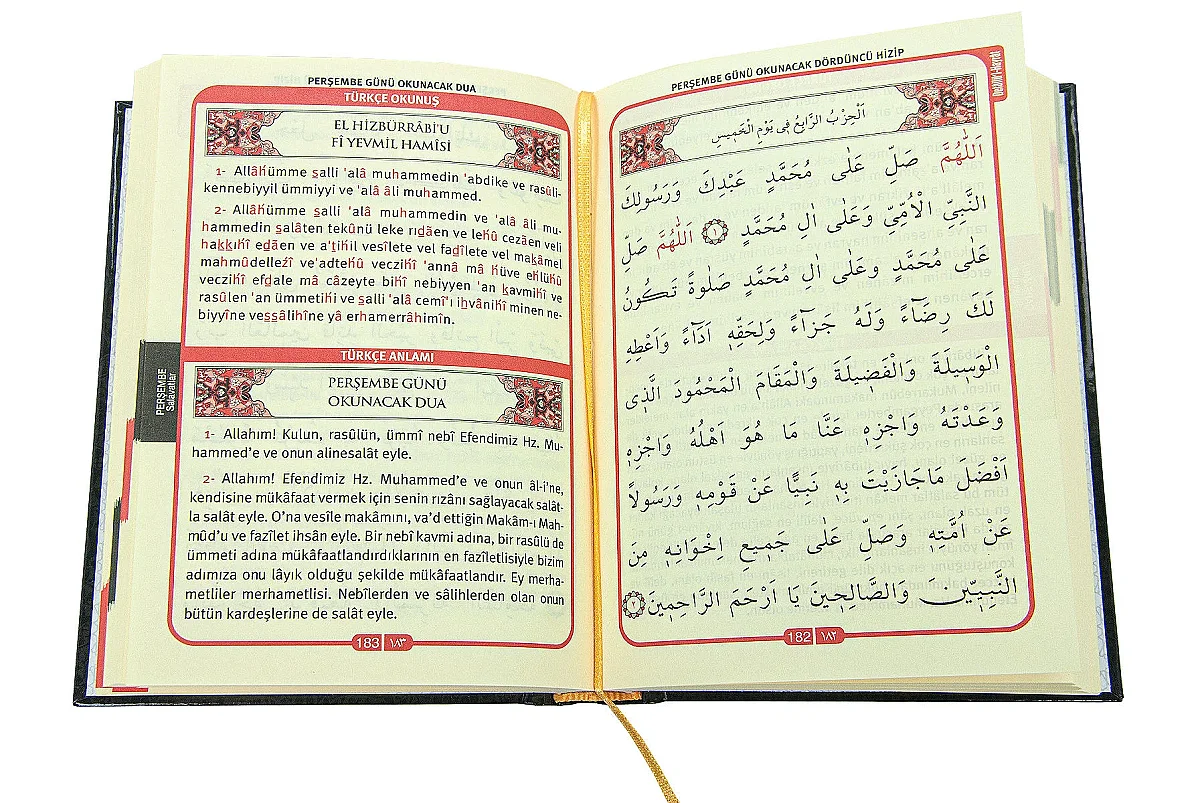 PERŞEMBE GÜNÜ OKUNACAK DÖRDÜNCÜ HİZİP
اَلْحِزْبُ الرَّابِعُ فِي يَوْمِ الْخَمِيسِ
اَللّٰهُمَّ صَلِّ عَلٰى مُحَمَّدٍ عَبْدِكَ وَرَسُولِكَ
النَّبِيِّ الْاُمِّيِّ وَعَلٰى اٰلِ مُحَمَّدٍ ۝١ اَللّٰهُمَّ صَلِّ
عَلٰى مُحَمَّدٍ وَعَلٰى اٰلِ مُحَمَّدٍ صَلٰوةً تَكُونُ
لَكَ رِضَٓاءً وَلَهُ جَزَٓاءً وَلِحَقِّهٖ اَدَٓاءً وَاَعْطِهِ
الْوَسِيلَةَ وَالْفَضِيلَةَ وَالْمَقَامَ الْمَحْمُودَ الَّذِي
وَعَدْتَهُ وَاجْزِهِ عَنَّا مَا هُوَ اَهْلُهُ وَاجْزِهٖ
اَفْضَلَ مَاجَازَيْتَ بِهٖ نَبِيًّا عَنْ قَوْمِهٖ وَرَسُولاً
عَنْ اُمَّتِهٖ وَصَلِّ عَلٰى جَمِيعِ اِخْوَانِهٖ مِنَ
النَّبِيّينَ وَالصَّالِحِينَ يَا اَرْحَمَ الرَّاحِمِينَ ۝٢
182 ١٨٢
PERŞEMBE GÜNÜ OKUNACAK DUA
TÜRKÇE OKUNUŞ
EL HİZBÜRRÂBİ'U
FÎ YEVMİL HAMÎSİ
1- Allâhümme salli 'alâ muhammedin 'abdike ve rasûli-
kennebiyyil ümmiyyi ve 'alâ âli muhammed.
2- Allâhümme salli 'alâ muhammedin ve 'alâ âli mu-
hammedin salâten tekûnü leke rıdâen ve lehû cezâen veli
hakkıhî edâen ve a'tıhil vesîlete vel fadîlete vel makâmel
mahmûdellezî ve'adtehû veczihî 'annâ mâ hüve ehlühû
veczihî efdale mâ câzeyte bihî nebiyyen 'an kavmihî ve
rasûlen 'an ümmetihi ve salli 'alâ cemî'ı ihvânihî minen ne-
biyyîne vessâlihîne yâ erhamerrâhimîn.
TÜRKÇE ANLAMI
PERŞEMBE GÜNÜ
OKUNACAK DUA
1- Allahım! Kulun, rasûlün, ümmî nebî Efendimiz Hz. Mu-
hammed'e ve onun alinesalât eyle.
2- Allahım! Efendimiz Hz. Muhammed'e ve onun âl-i'ne,
kendisine mükâfaat vermek için senin rızânı sağlayacak salât-
la salât eyle. O'na vesîle makâmını, va'd ettiğin Makâm-ı Mah-
mûd'u ve fazîlet ihsân eyle. Bir nebî kavmi adına, bir rasûlü de
ümmeti adına mükâfaatlandırdıklarının en fazîletlisiyle bizim
adımıza onu lâyık olduğu şekilde mükâfaatlandır. Ey merha-
metliler merhametlisi. Nebîlerden ve sâlihlerden olan onun
bütün kardeşlerine de salât eyle.
183 ١٨٣
PERŞEMBE
Salavatlar